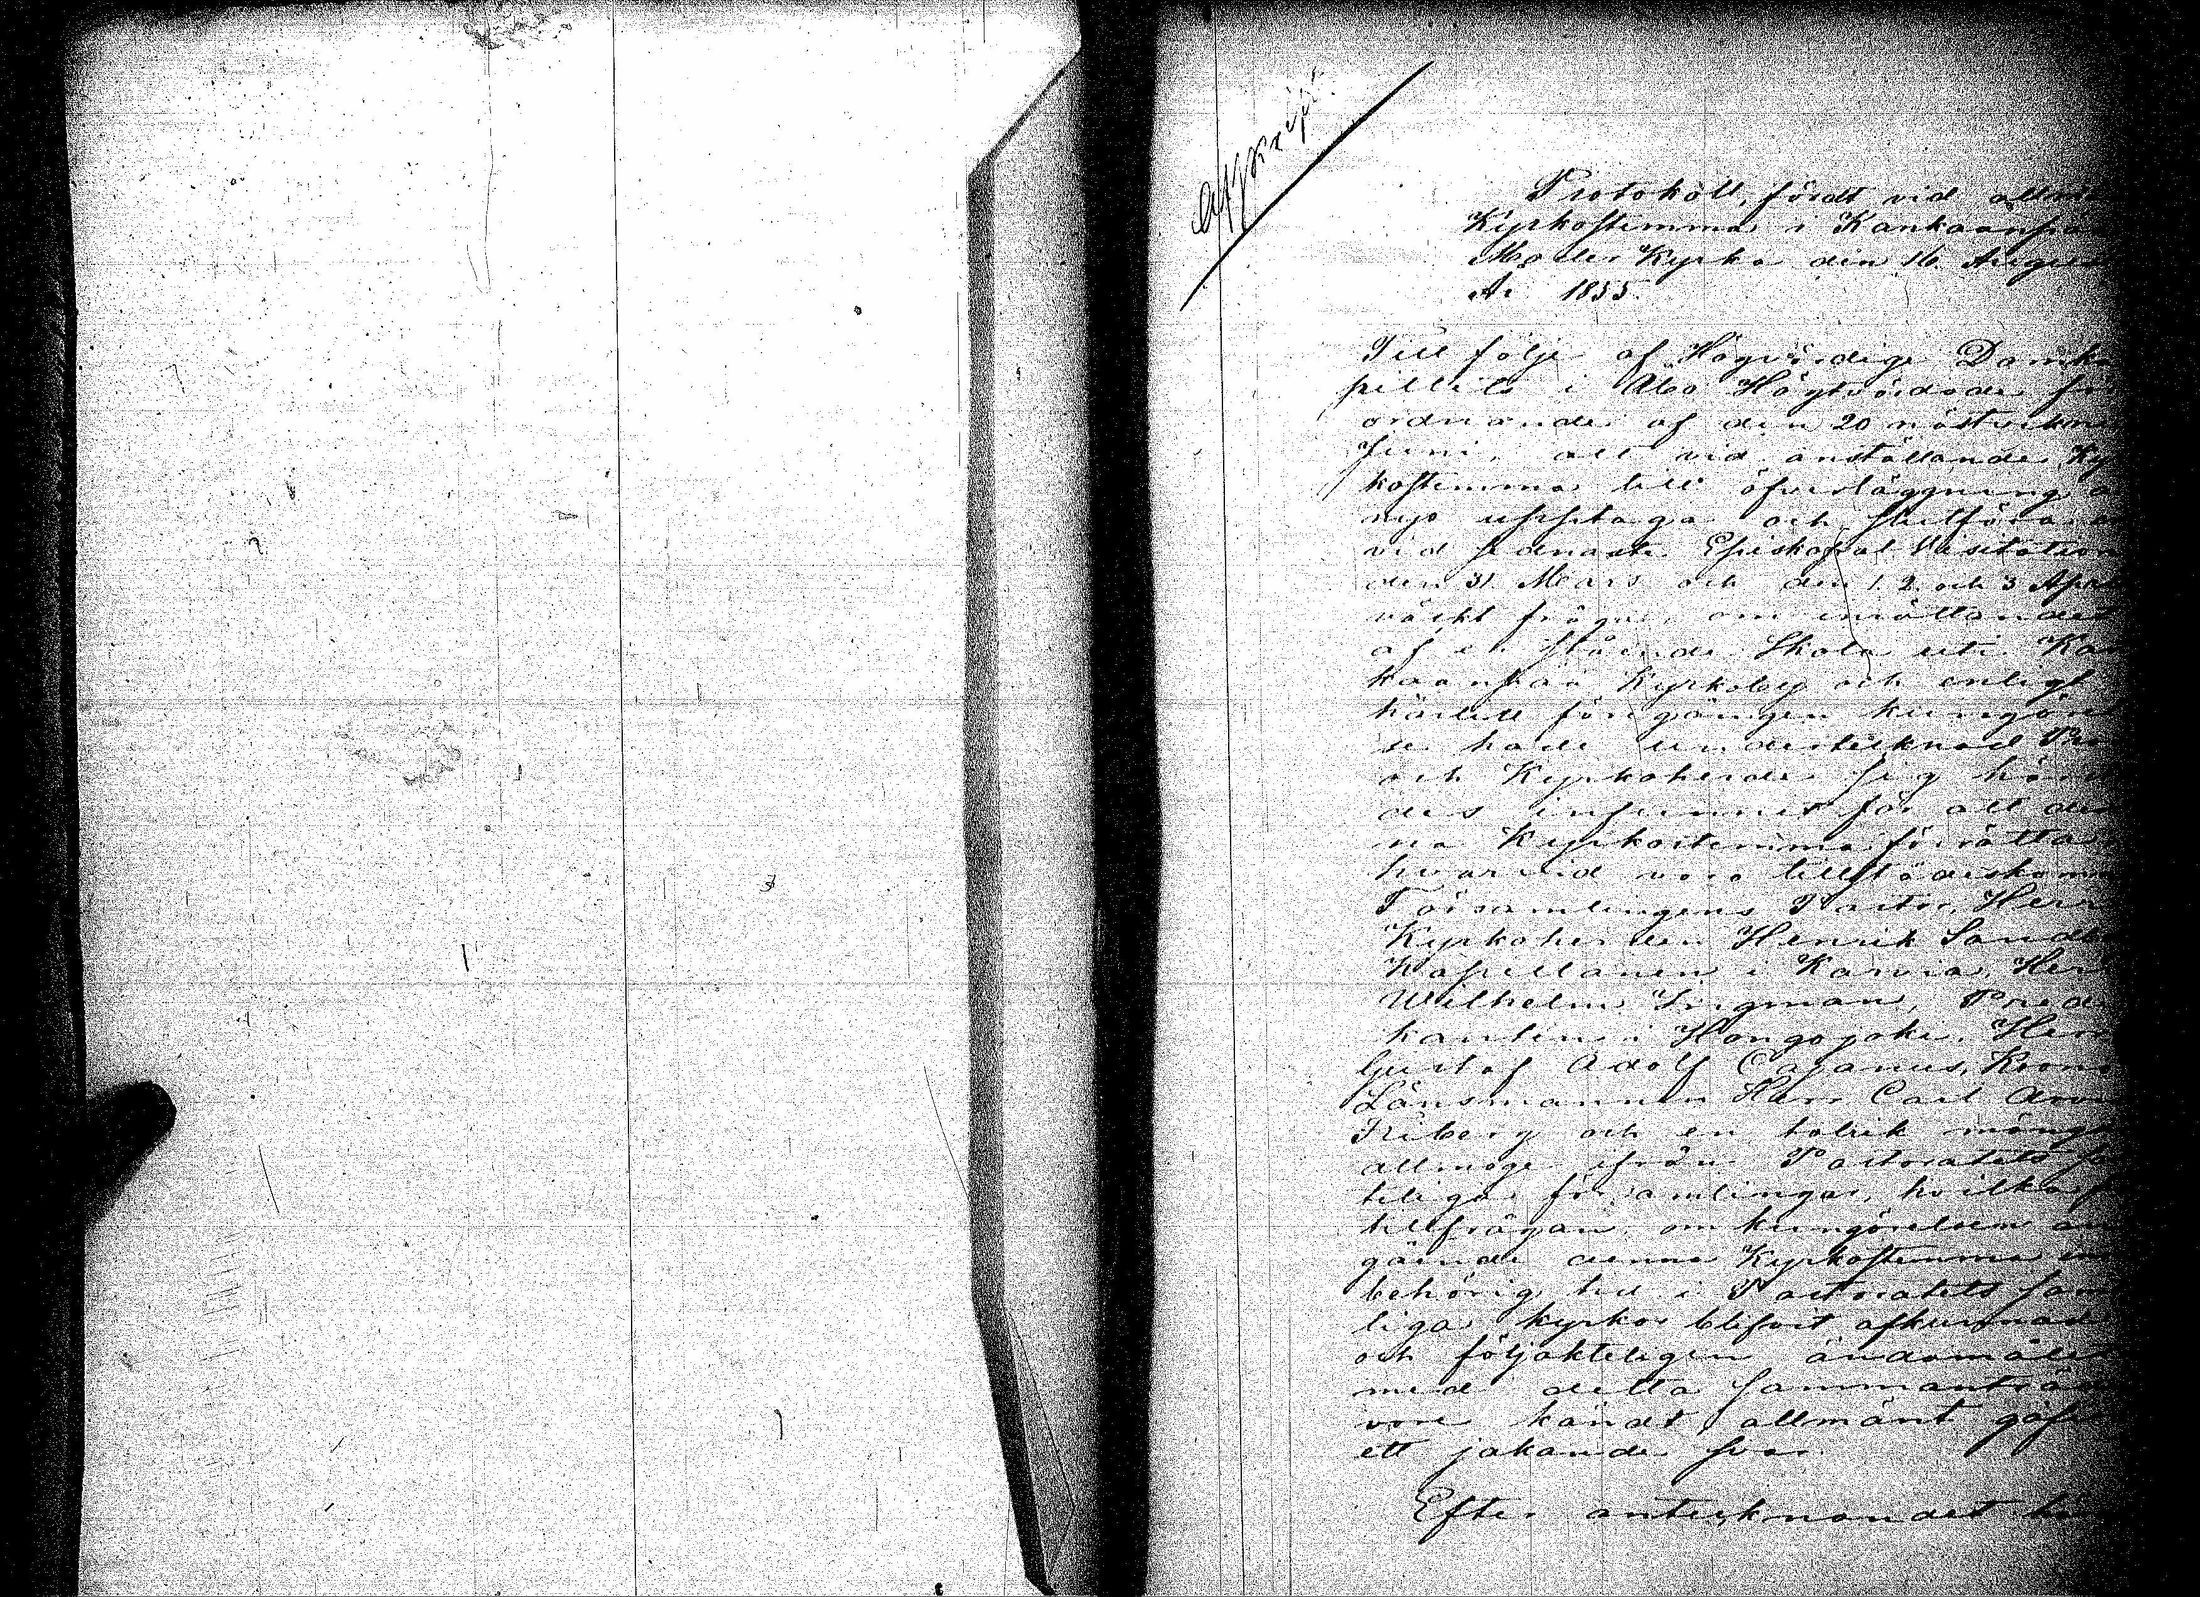 Afskrift.
Protokoll, fördt vid allmän
Kyrkostemma i Kankaanpää
Moder Kyrka den 16 Augusti
År 1855.
Till följe af Högvördige Domka
pitlets i Åbo Högtvördade för
ordnande af den 20 nästvekne
Juni, att vid anställande Kyr
kostemma till öfverläggning å
nyo upptaga och slutföra
vid sednaste Episkopal Visitation
den 31 Mars och den 1. 2. och 3 April
väckt fråga, om inrättandet
af en stående Skola uti Kan
kaanpää Kyrkoby och enligt
härtill föregången kungörel
se hade undertecknad
och Kyrkoherde sig här
des infunnit för att den
na Kyrkostemma förrätta,
hvarvid voro tillstädeskomne
Församlingens Pastor, Herr
Kyrkoherden Henrik
Kapellanen i Karvia, Herr
Wilhelm Lingman, Predi
kanten i Hongojoki, Herr
Gustaf Adolf Cajanus, Krono
Länsmannen Herr Carl
Friberg och en talrik mängd
allmoge ifrån Pastoratets sam
teliga församlingar, hvilka
tillfrågan om kungörelsen an
gående denna Kyrkostemma
behörig tid i Pastoratets samt
liga kyrkor blifvit afkunnad
och följakteligen ändamålet
med detta sammanträde
vore kändt allmänt gåfvo
ett jakande svar.
Efter antecknandet